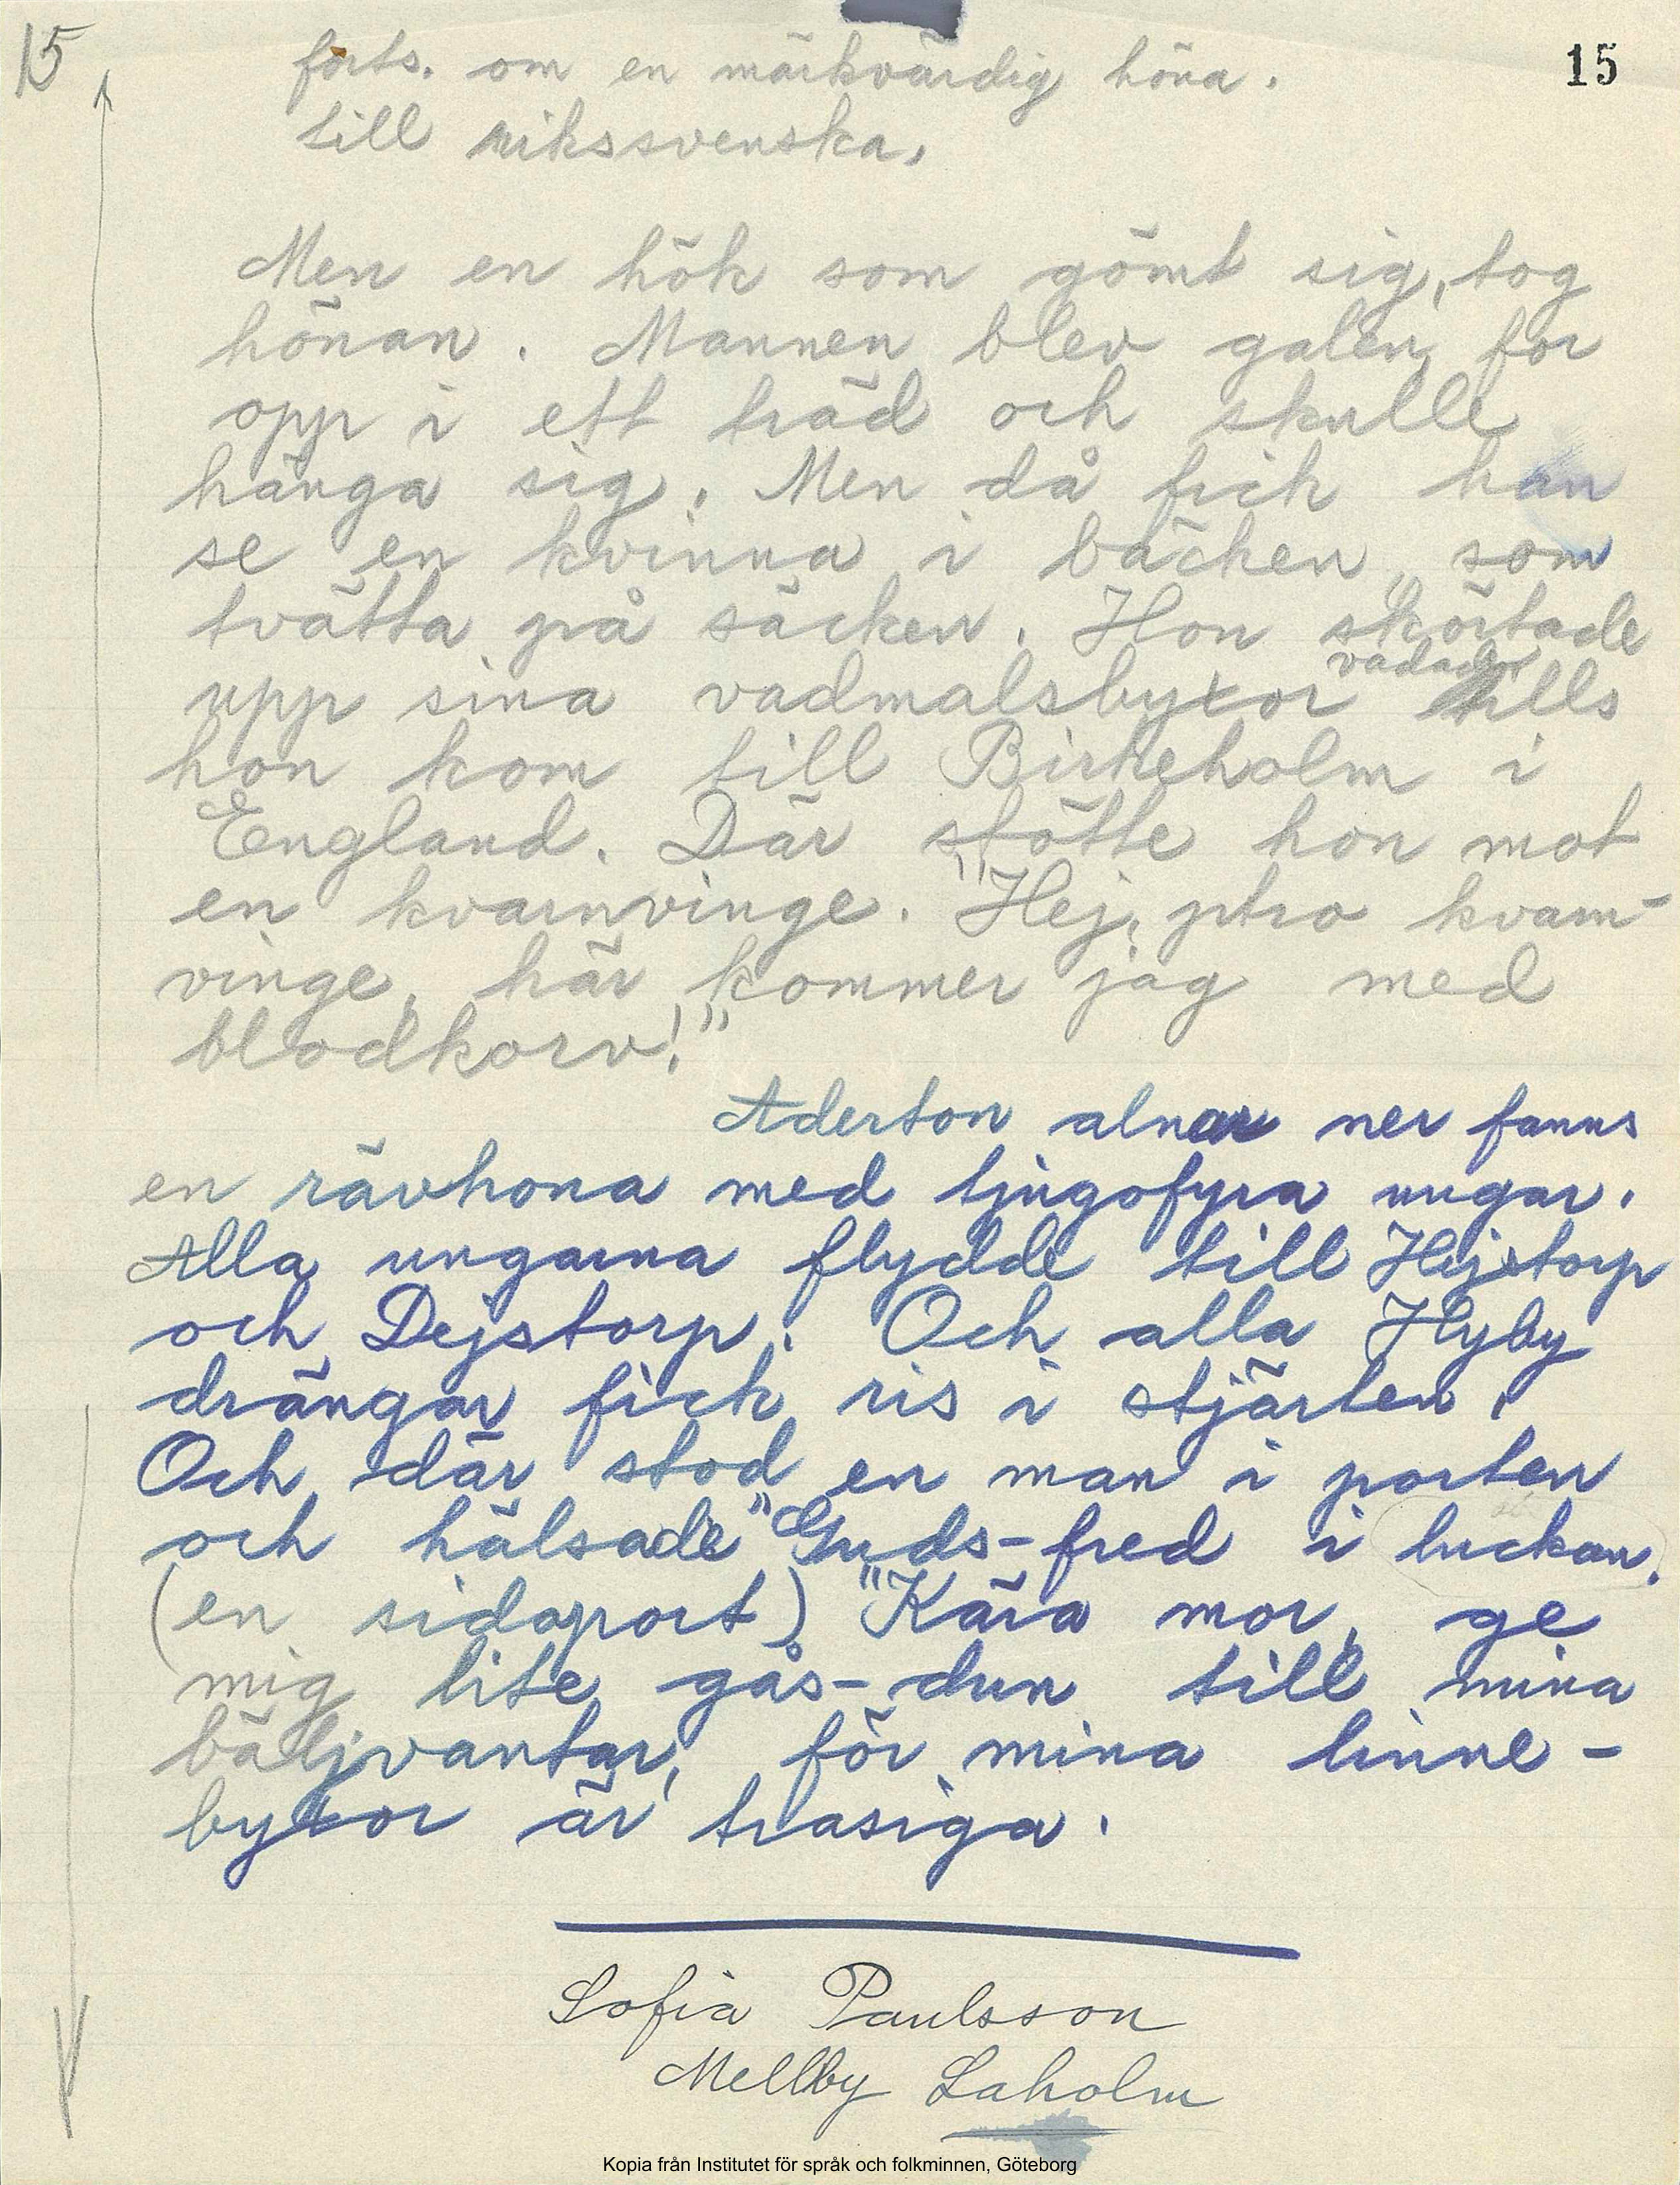 15
15
forts. om en märkvärdig höna.
till rikssvenska.
Men en hök som gömt sig, tog
hönan. Mannen blev galen, for
opp i ett träd och skulle
hänga sig. Men då fick han
se en kvinna i bäcken, som
tvätta på säcken. Hon skörtade
upp sina vadmalsbyxor vadade tills
hon kom till Birkeholm i
England. Där stötte hon mot
en kvarnvinge. "Hej, ptro kvarn-
vinge, här kommer jag med
blodkorv!"
Aderton alnar ner fanns
en rävhona med tjugofyra ungar.
Alla ungarna flydde till Hejstorp
och Dejstorp. Och alla Hyby
drängar fick ris i stjärten.
Och där stod en man i porten
och hälsade "Guds-fred i luckan.
(en sidoport) "Kära mor, ge
mig lite gås-dun till mina
bäljvantar, för mina linne-
byxor är trasiga.
Sofia Paulsson
Mellby Laholm
Kopia från Institutet för språk och folkminnen, Göteborg